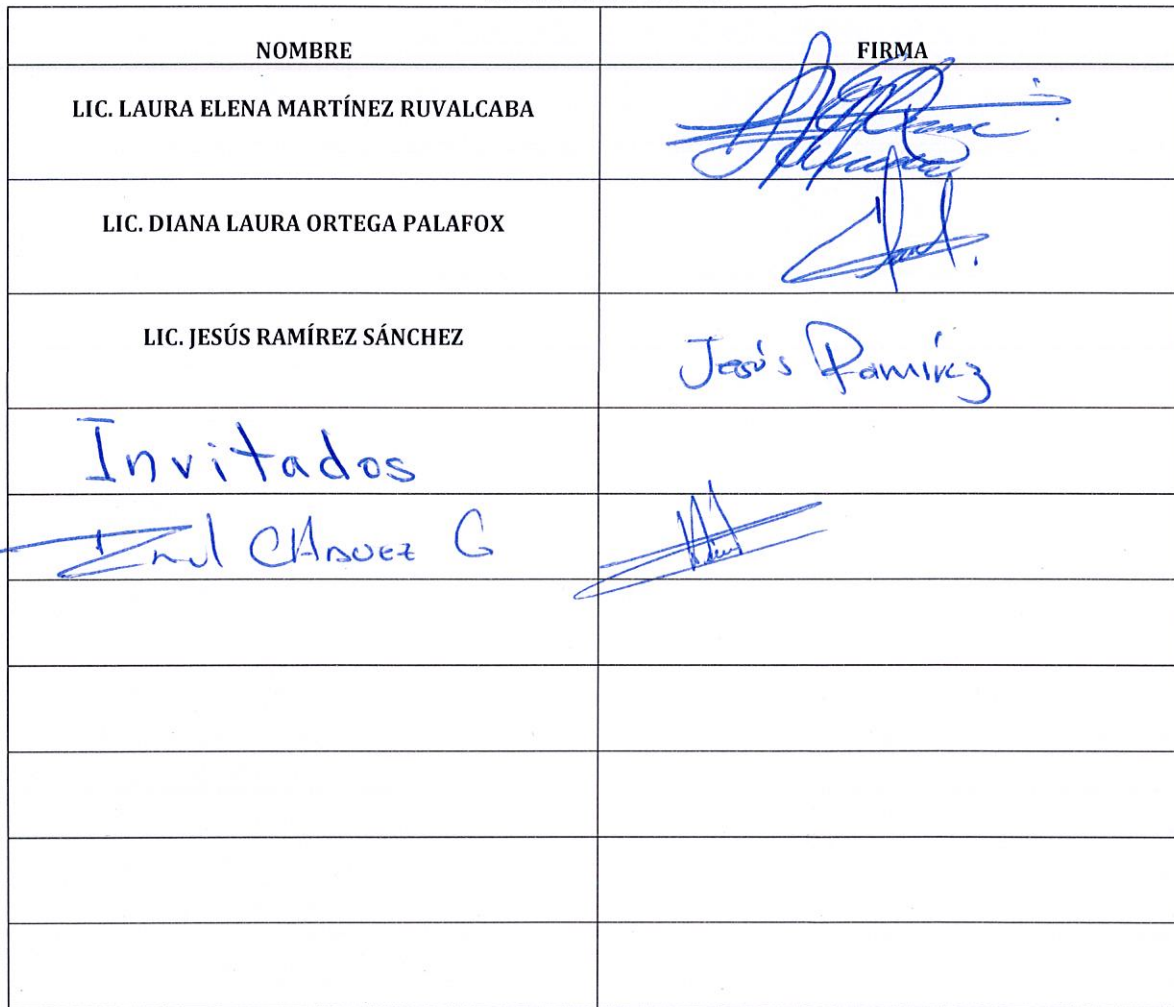 NOMBRE FIRMA
LIC. LAURA ELENA MARTÍNEZ RUVALCABA
LIC. DIANA LAURA ORTEGA PALAFOX
LIC. JESÚS RAMÍREZ SÁNCHEZ Jesús Ramírez
Invitados
CHAVEZ G